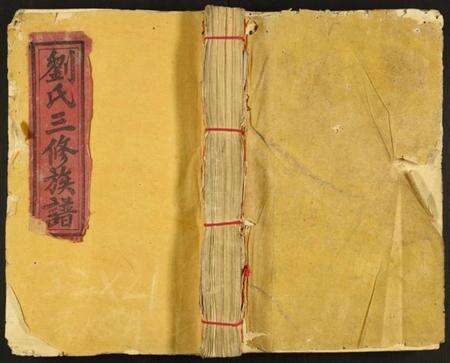 劉氏三修族譜